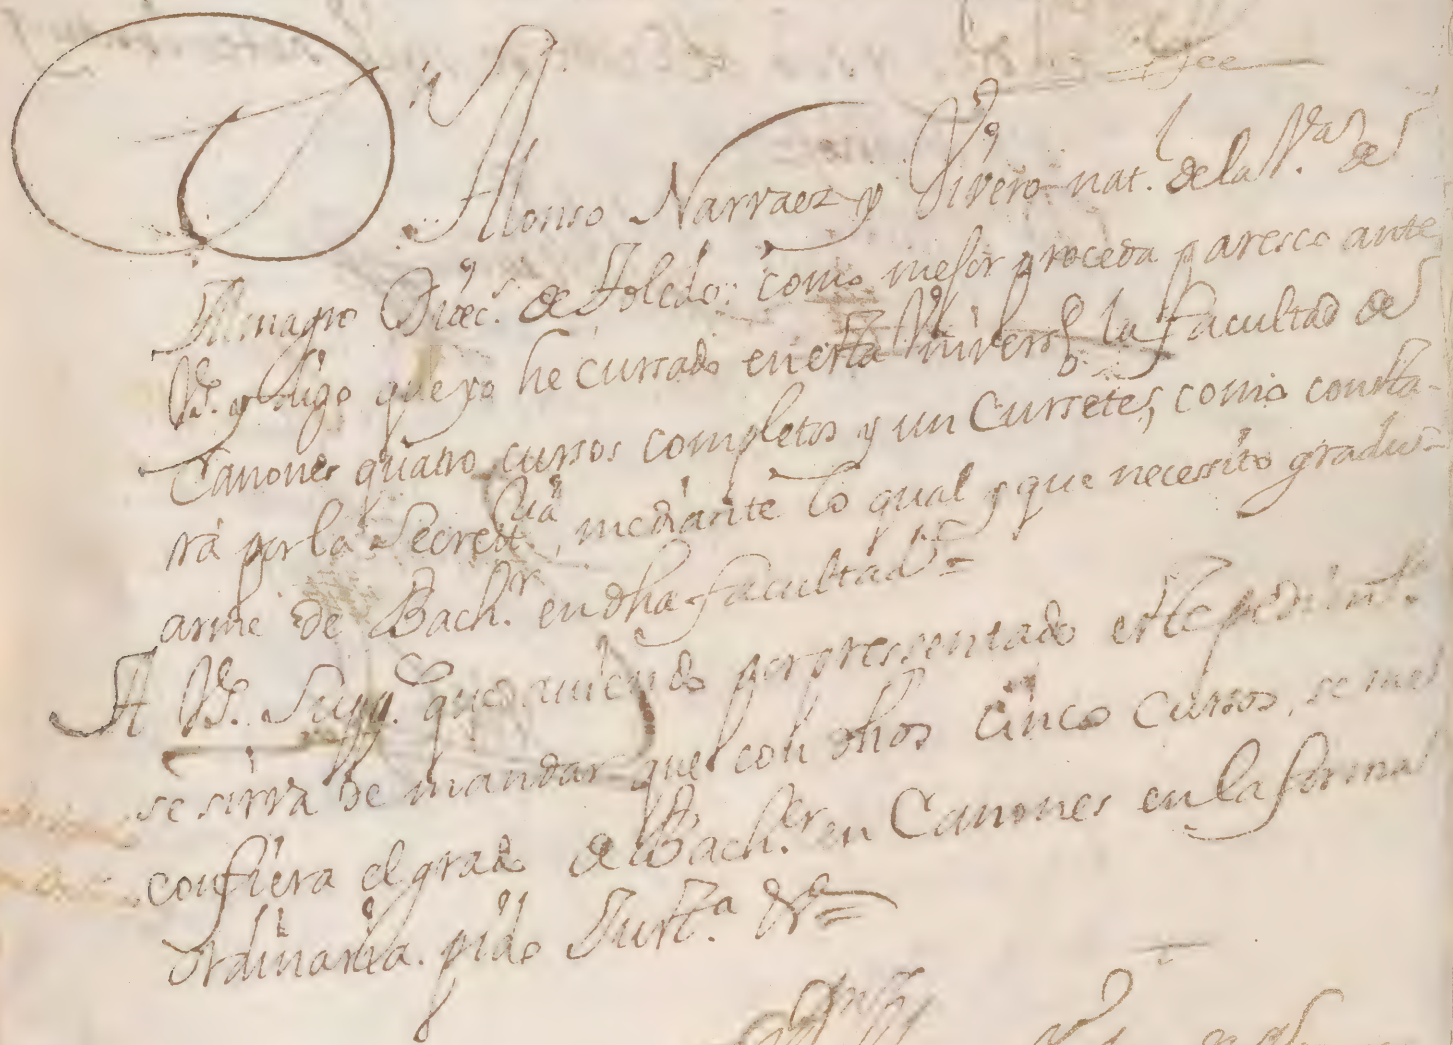 Dn Alonso Narvaez y Vivero nat.l de la V.a de
Almagro Diocs. de Toledo: como mejor proceda paresco ante
Vs. y digo que yo he cursado en esta Universd. la facultad de
Canones quatro cursos completos y un Cursetes, como consta-
rà por la Secrettria, mediante lo qual y que necessito gradu-
arme de Bach.r en dha facultad=
A Vs. Suppco. que aviendo por pressentado este pedimt.o
se sirva de mandar que con dhos cinco cursos, se me
confiera el grado de Bach.er en Canones en la forma
ordinaria. pido Just.a &a=